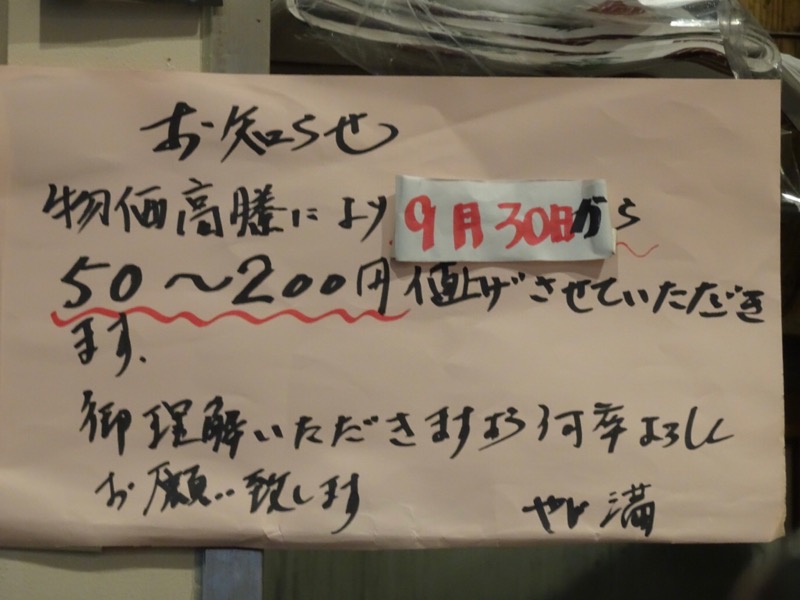 お知らせ
物価高騰により9月30日から
50〜200円値上げさせていただき
ます.
御理解いただきますよう何卒よろしく
お願い致します
やじ満